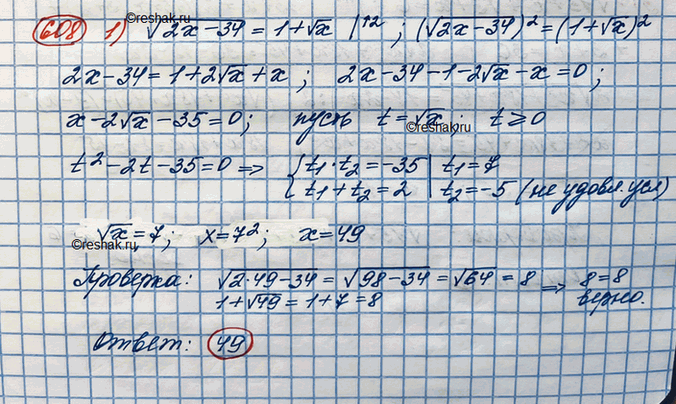 ©reshak.ru
608 1) √(2x-34) = 1+√x |↑2 ; (√(2x-34))² = (1+√x)²
2x-34 = 1+2√x+x ; 2x-34-1-2√x-x=0 ;
x-2√x-35=0; пусть t=√x, t⩾0
©reshak.ru
t²-2t-35=0 => { t₁·t₂=-35 | t₁=7
t₁+t₂=2 | t₂=-5 (не удовл. усл)
√x=7; x=7²; x=49
©reshak.ru
Проверка: √(2·49-34) = √(98-34) = √64 = 8 => 8=8
1+√49 = 1+7 = 8 верно.
Ответ: 49